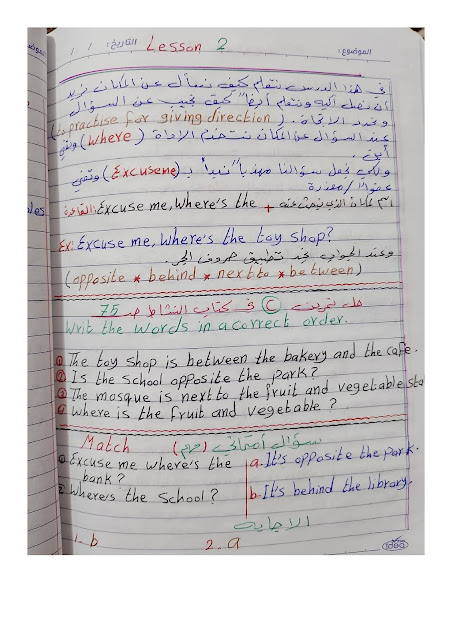 الموضوع: Lesson 2 التاريخ: / /
في هذا الدرس نتعلم كيف نسأل عن المكان نريد
أن نصل إليه ونتعلم أيضاً كيف نجيب عن السؤال
ونحدد الاتجاه. (to practise for giving direction)
عند السؤال عن المكان نستخدم الاداة (where) وتعني
أين.
ولكي نجعل سؤالنا مهذباً نبدأ بـ (Excuse me) وتعني
عفواً / معذرة
القاعدة: Excuse me, where's the + اسم المكان الذي نبحث عنه
Ex: Excuse me, where's the toy shop?
وعند الجواب يجب تطبيق حروف الجر.
(opposite * behind * next to * between)
حل تمرين C في كتاب النشاط ص 75
Writ the words in a correct order.
1 The toy shop is between the bakery and the cafe.
2 Is the school opposite the park?
3 The mosque is next to the fruit and vegetable sta
4 Where is the fruit and vegetable?
Match (مهم) سؤال امتحاني
1 Excuse me where's the a. It's opposite the park.
bank?
2 Where's the school? b. It's behind the library.
الاجابه
1. b 2. a
idea